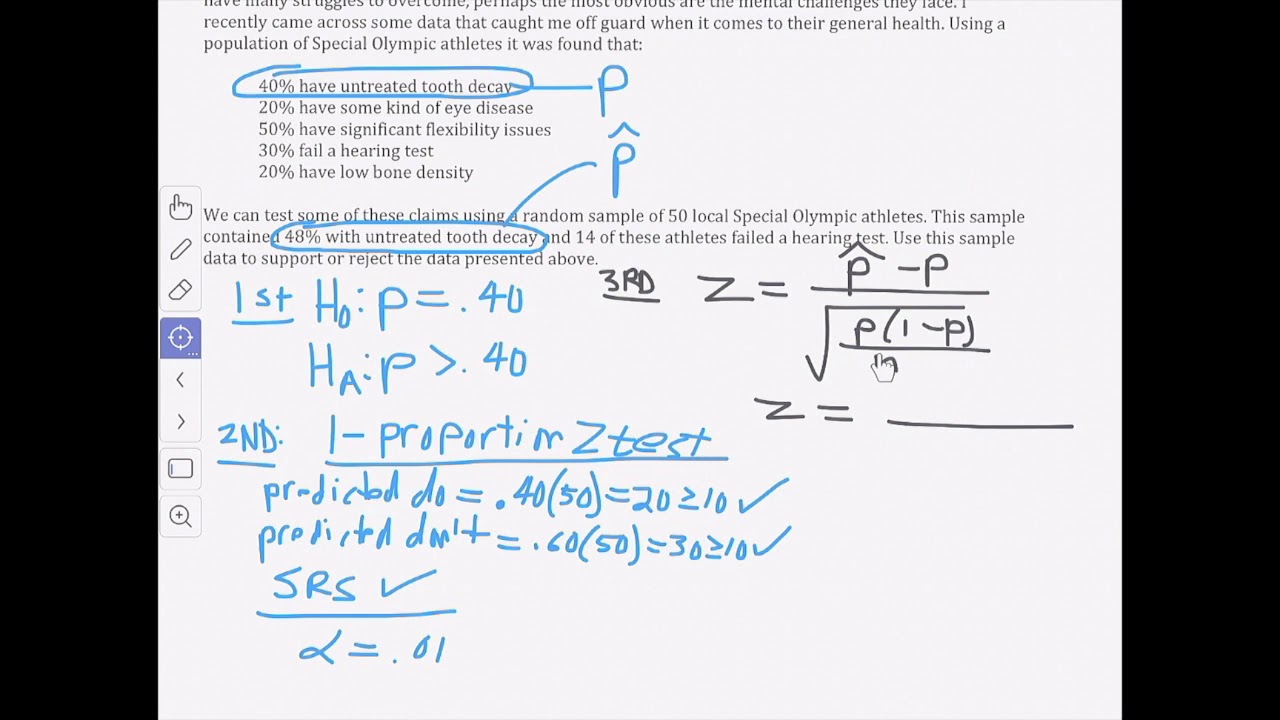 have many struggles to overcome, perhaps the most obvious are the mental challenges they face. I
recently came across some data that caught me off guard when it comes to their general health. Using a
population of Special Olympic athletes it was found that:
40% have untreated tooth decay
20% have some kind of eye disease
50% have significant flexibility issues
30% fail a hearing test
20% have low bone density
p
p̂
We can test some of these claims using a random sample of 50 local Special Olympic athletes. This sample
contained 48% with untreated tooth decay and 14 of these athletes failed a hearing test. Use this sample
data to support or reject the data presented above.
1st H₀: p = .40
Hₐ: p > .40
2ND: 1-proportion Z test
predicted do = .40(50) = 20 ≥ 10 ✓
predicted don't = .60(50) = 30 ≥ 10 ✓
SRS ✓
α = .01
3RD z = p̂ - p
√ p(1-p)
n
z =